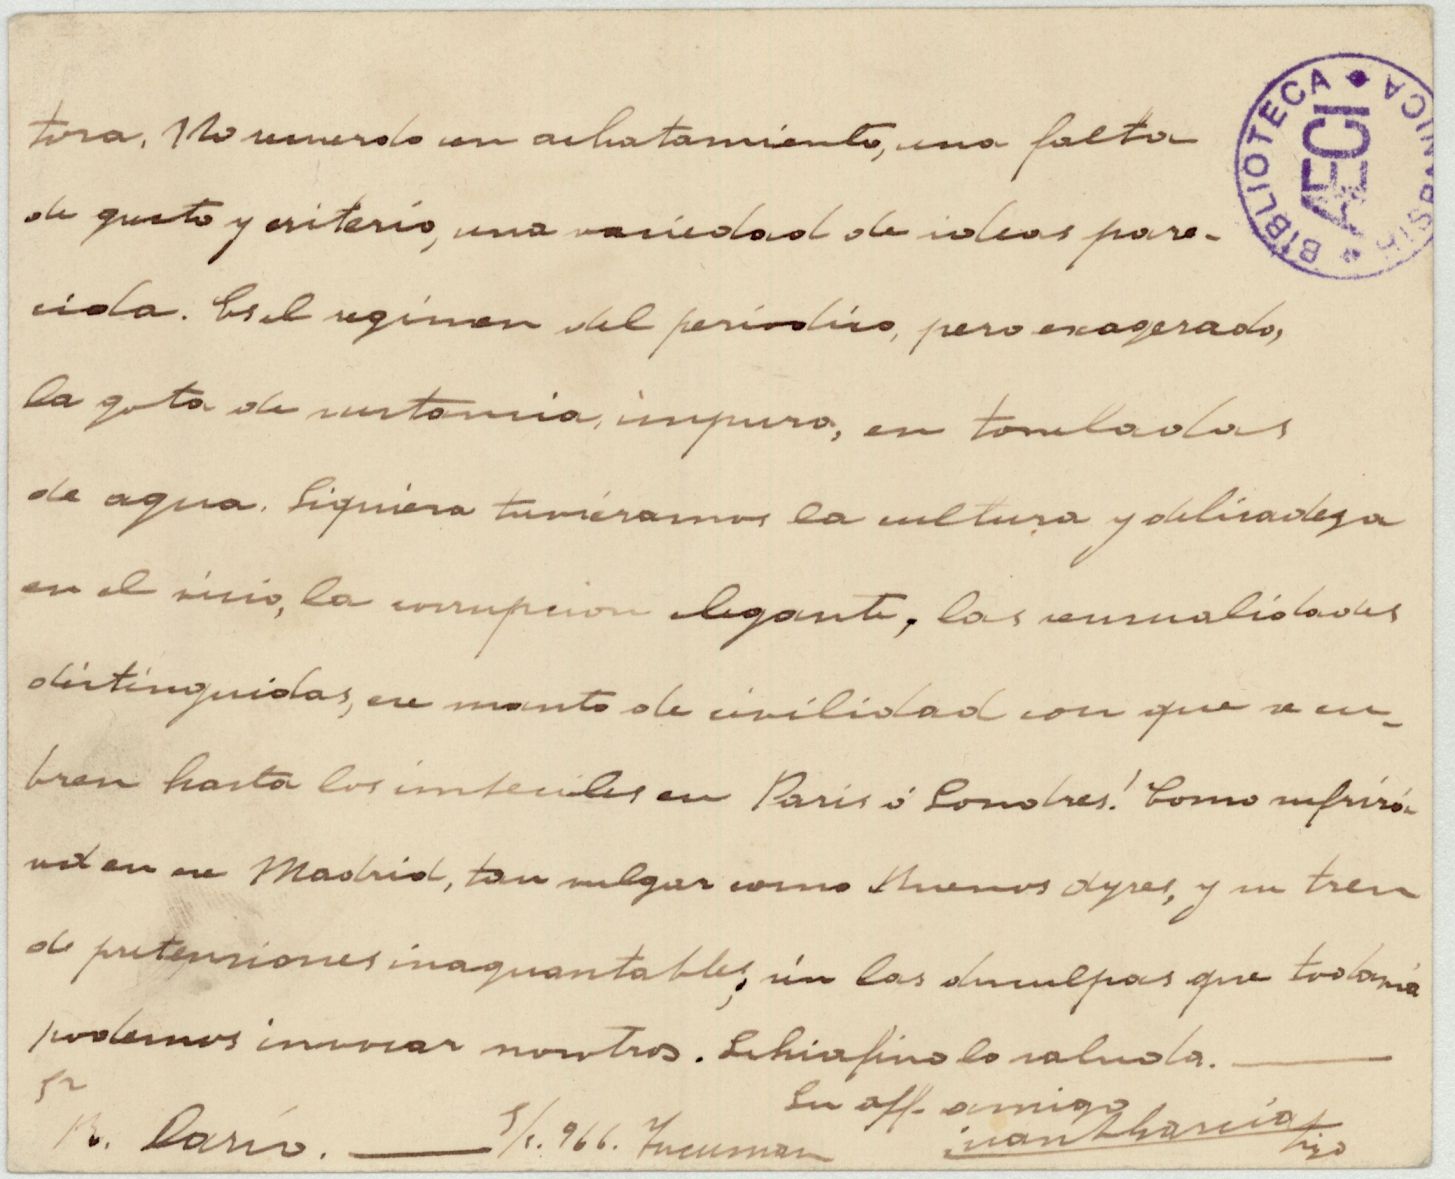 BIBLIOTECA HISPANICA
AECI
tora. No recuerdo un achatamiento, una falta
de gusto y criterio, una variedad de ideas pare-
cida. Es el regimen del periodico, pero exagerado,
la gota de sustancia, impura, en toneladas
de agua. Siquiera tuviéramos la cultura y delicadeza
en el vicio, la corrupcion elegante, las sensualidades
distinguidas, ese manto de civilidad con que se cu-
bren hasta los imbeciles en Paris ó Londres! Como sufrirá
ud en ese Madrid, tan vulgar como Buenos Ayres, y su tren
de pretensiones inaguantables, sin las disculpas que todavia
podemos invocar nosotros. Schiafino lo saluda.
Su aff. amigo
Sr
R. Darío. S/c. 966. Tucuman
Juan A García hijo